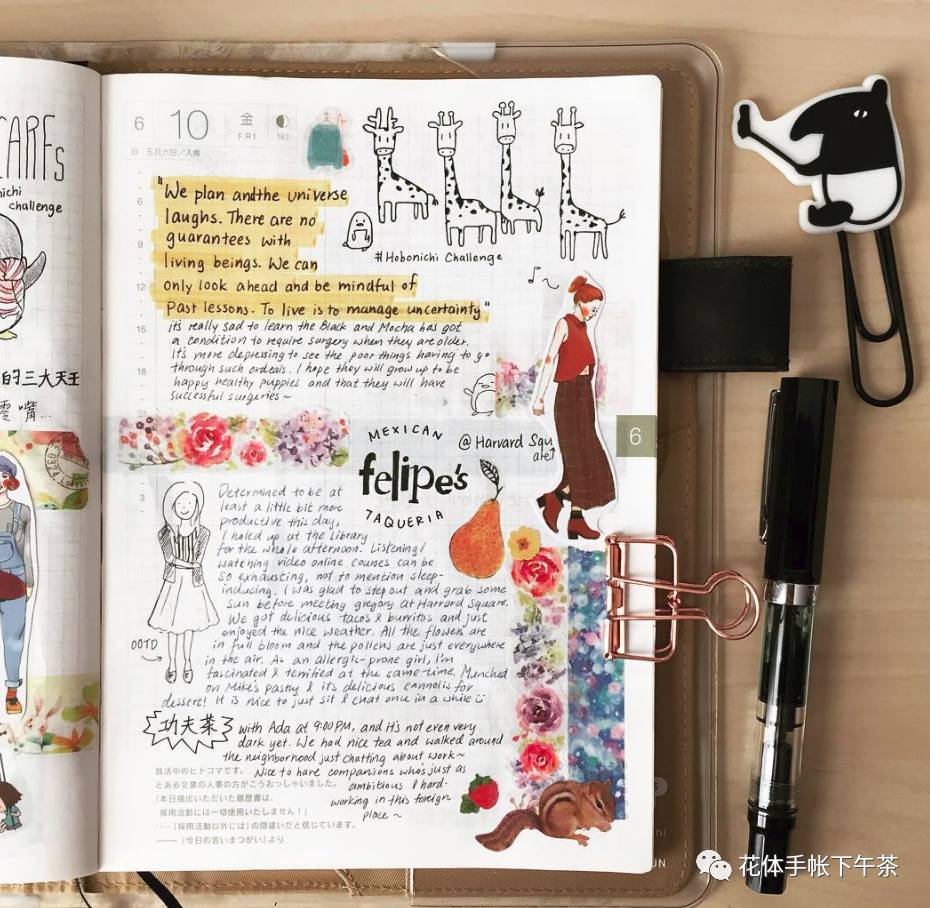 CARFs
nichi
challenge
的三大天王
零嘴...
6
10
金
FRI
旧 五月六日/入梅
"We plan and the universe
laughs. There are no
guarantees with
living beings. We can
only look ahead and be mindful of
Past lessons. To live is to manage uncertainty"
#Hobonichi Challenge
it's really sad to learn the Black and Mocha has got
a condition to require surgery when they are older.
It's more depressing to see the poor things having to go
through such ordeals. I hope they will grow up to be
happy healthy puppies and that they will have
successful surgeries~
6
9
12
15
18
3
6
MEXICAN
felipe's
TAQUERIA
@ Harvard Squ
are↑
Determined to be at
least a little bit more
productive this day,
I holed up at the Library
for the whole afternoon. Listening/
watching video online courses can be
so exhausting, not to mention sleep-
inducing. I was glad to step out and grab some
sun before meeting gregory at Harvard Square.
We got delicious tacos & burritos and just
enjoyed the nice weather. All the flowers are
in full bloom and the pollens are just everywhere
in the air. As an allergic-prone girl, I'm
fascinated & terrified at the same time. Munched
on Mike's pastry & it's delicious cannolis for
dessert! It is nice to just sit & chat once in a while
OOTD
功夫茶
with Ada at 9:00 PM, and it's not even very
dark yet. We had nice tea and walked around
the neighborhood just chatting about work~
Nice to have companions who's just as
ambitious & hard-
working in this foreign
place~
就活中のヒトコマです。
とある企業の人事の方がこうおっしゃいました。
「本日提出いただいた履歴書は、
採用活動には一切使用いたしません！」
‥‥「採用活動以外には」の間違いだと信じています。
——『今日の言いまつがい』より
花体手帐下午茶